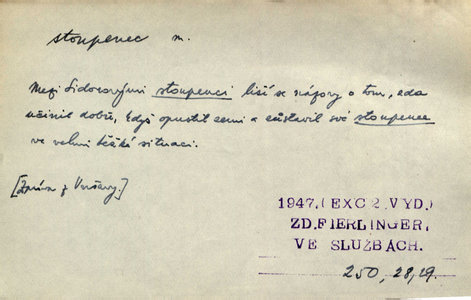 stoupenec m.
Mezi Sidorovými stoupenci liší se názory o tom, zda
učinil dobře, když opustil zemi a zůstavil své stoupence
ve velmi těžké situaci.
[Zpráva z Varšavy.]
1947.(EXC 2.VYD.)
ZD.FIERLINGER,
VE SLUŽBÁCH.
250, 28, 29.